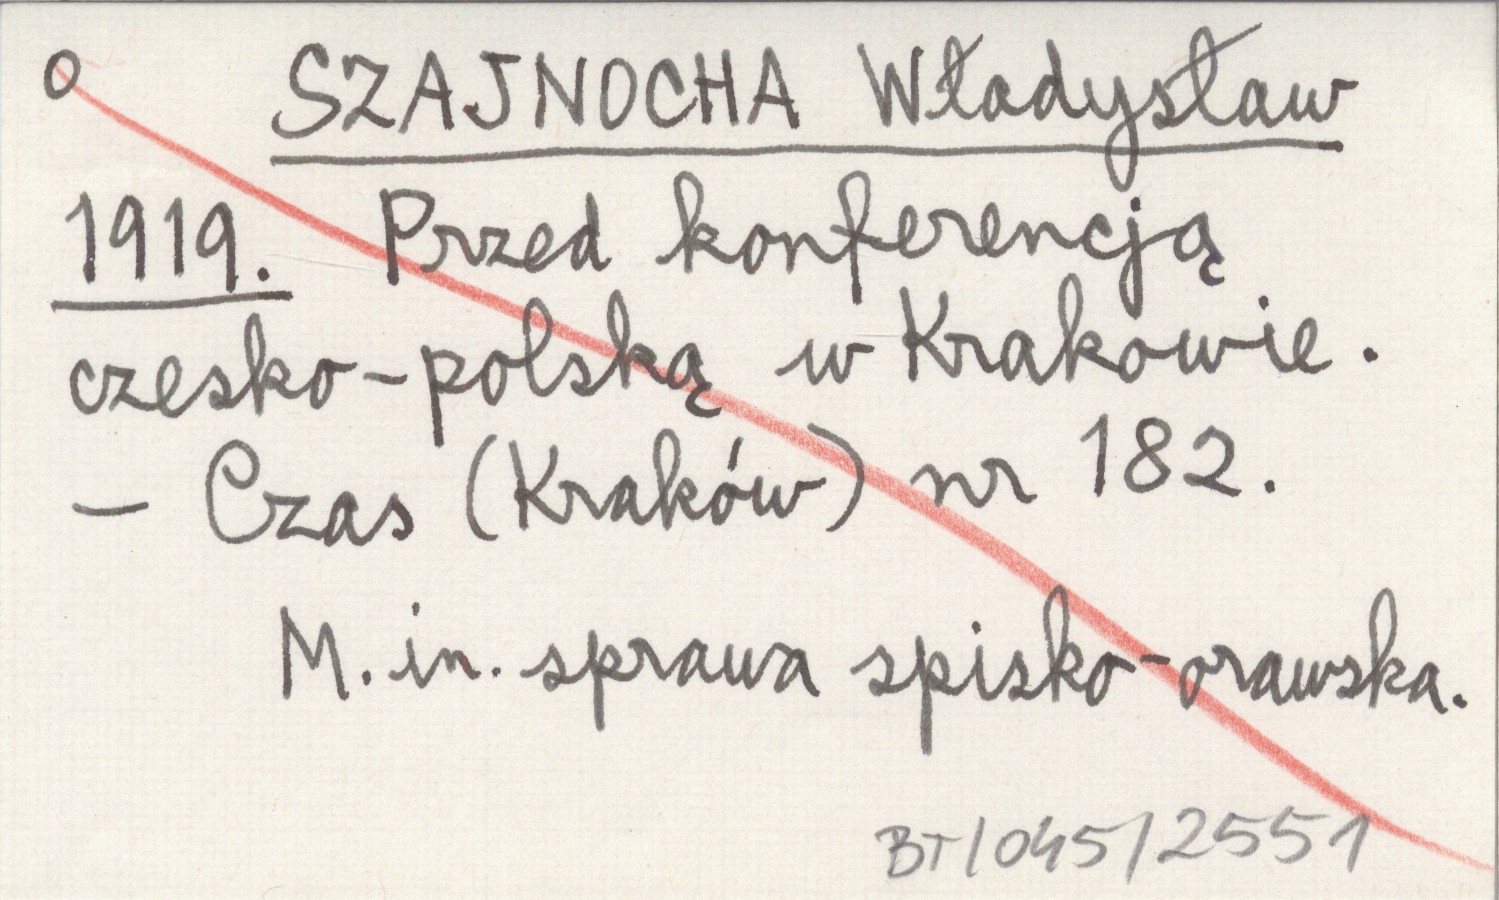 O SZAJNOCHA Władysław
1919. Przed konferencją
czesko-polską w Krakowie.
- Czas (Kraków) nr 182.
M. in. sprawa spisko-orawska.
BT/045/2551